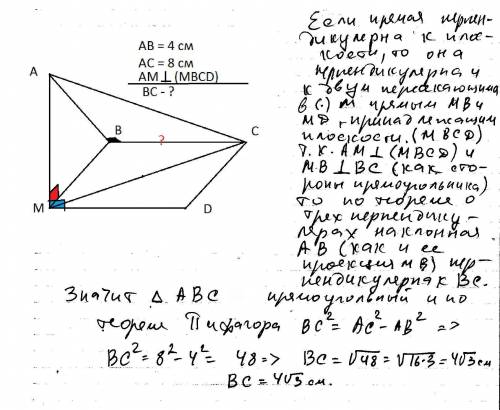 AB = 4 см
AC = 8 см
AM ⊥ (MBCD)
BC - ?
A
B
?
C
M
D
Если прямая перпен-
дикулярна к плос-
кости, то она
перпендикулярна и
к двум пересекающимся
в (·) M прямым MB и
MD, принадлежащим
плоскости (MBCD)
Т.К. AM⊥(MBCD) и
MB⊥BC (как сто-
роны прямоугольника)
то по теореме о
трех перпендику-
лярах наклонная
AB (как и ее
проекция MB) пер-
пендикулярна к BC.
Значит △ ABC прямоугольный и по
теореме Пифагора BC² = AC² - AB² =>
BC² = 8² - 4² = 48 => BC = √48 = √16·3 = 4√3 см
BC = 4√3 см.